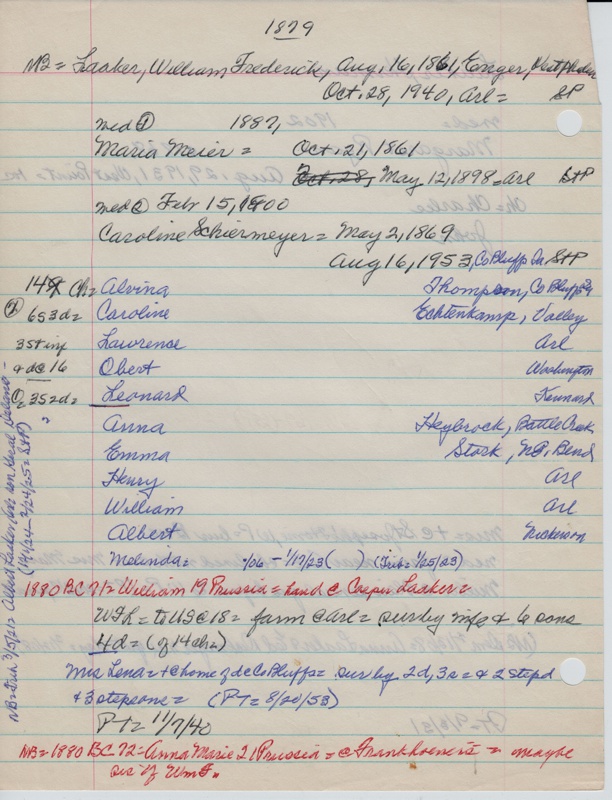 1879
NB = Laaker, William Frederick, Aug. 16, 1861, Enger, Westphalen
Oct. 28, 1940, Arl = StP
med ① 1887,
Maria Meier = Oct. 21, 1861
Oct. 28, May 12, 1898 = Arl StP
med ② Feb 15, 1900
Caroline Schiermeyer = May 2, 1869
Aug 16, 1953, Co Bluffs Ia StP
14 Ch = Alvina Thompson, Co Bluffs
② 6s3d = Caroline Echtenkamp, Valley
3s Lawrence Arl
+ dc 16 Obert Washington
① 3s2d = Leonard Kennard
" Anna Heybrock, Battle Creek
Emma Stork, No. Bend
Henry Arl
William Arl
Albert Nickerson
Melinda = /06 - 1/17/23 ( ) (Trib = 1/25/23)
1880 BC 71 = William 19 Prussia = Land c Casper Laaker =
WFL = to US @ 18 = farm @ Arl = sur by wife & 6 sons
4d = (of 14 chn)
Mrs Lena = + @ home of d @ Co Bluffs = sur by 2d, 3s = & 2 stepd
& 3 stepsons = (PT = 8/20/53)
PT = 11/7/40
NB = 1880 BC 72 = Anna Marie 21 Prussia = @ Frank = maybe
sis of Wm F.